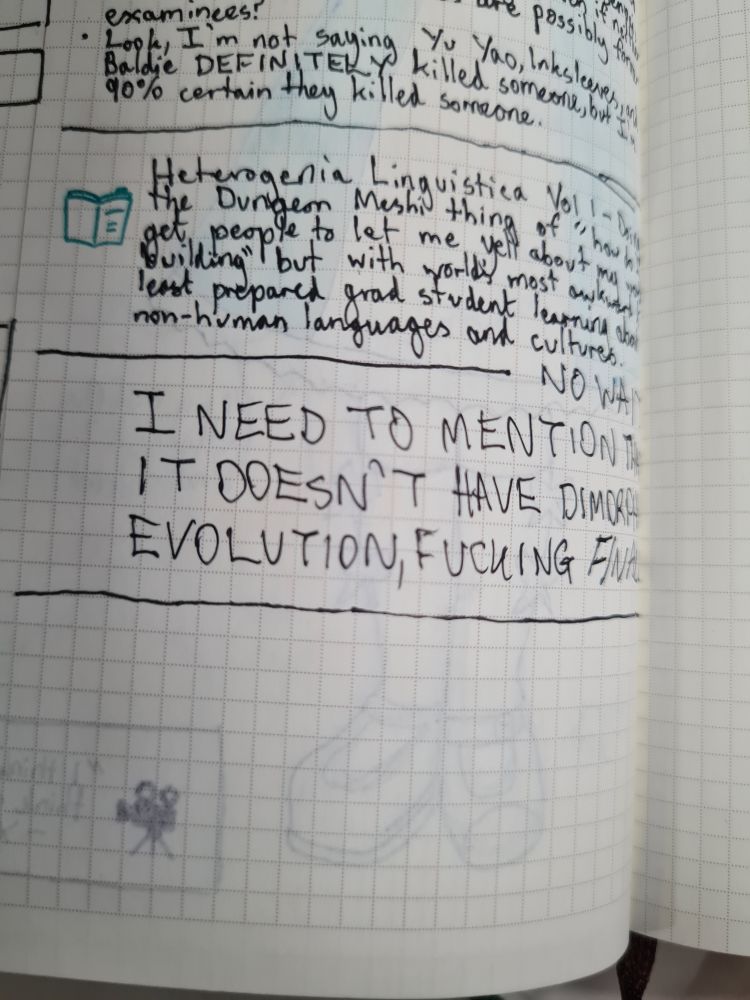 examinees?
are possibly
• Look, I'm not saying Yu Yao, Inksleeves, and
Baldie DEFINITELY killed someone, but I'm
90% certain they killed someone.
Heterogenia Linguistica Vol 1 - Doing
the Dungeon Meshi thing of "how do I
get people to let me yell about my
building" but with world's most awkward
least prepared grad student learning about
non-human languages and cultures.
NO WAIT
I NEED TO MENTION
IT DOESN'T HAVE
EVOLUTION, FUCKING